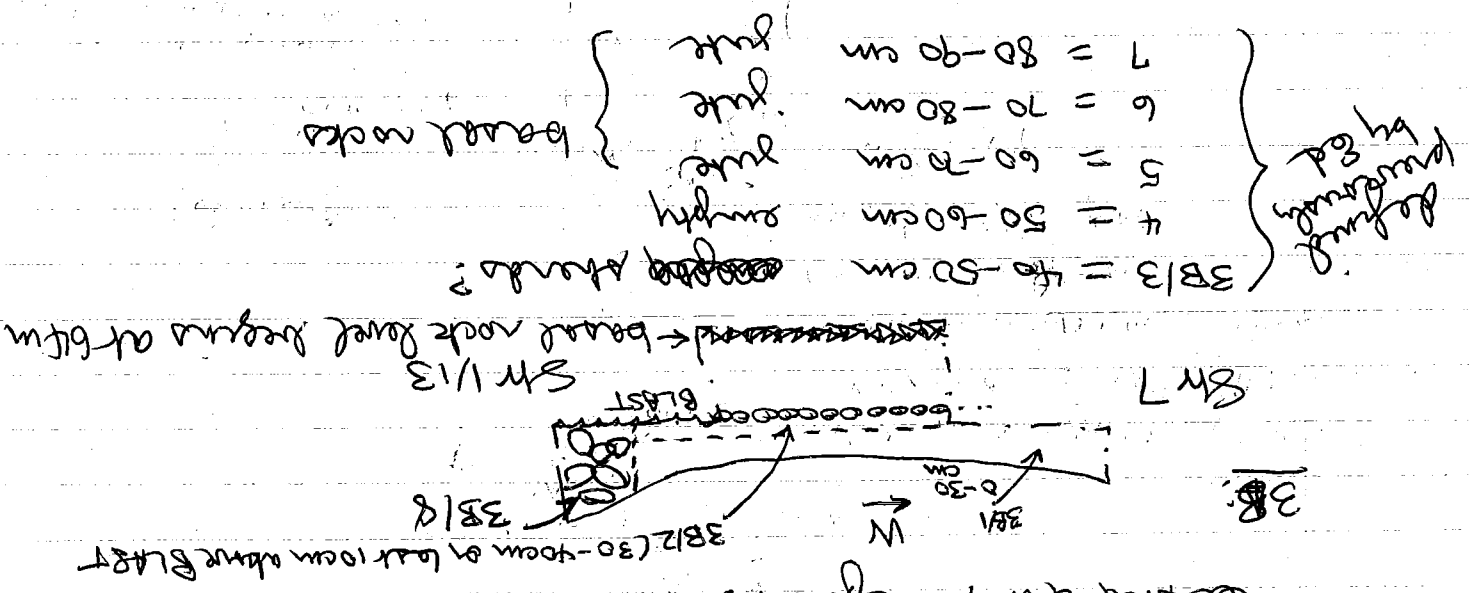 3B/2 (30-40cm or last 10cm above BLAST
3B:
3B/1
0-30
cm
3B/8
Str 7
BLAST
Str 1/13
← basal rock level begins at 64cm
3B/3 = 40-50 cm sherds?
4 = 50-60cm empty
5 = 60-70 cm
6 = 70-80cm
7 = 80-90 cm
basal rocks
defined
previously
by Ed